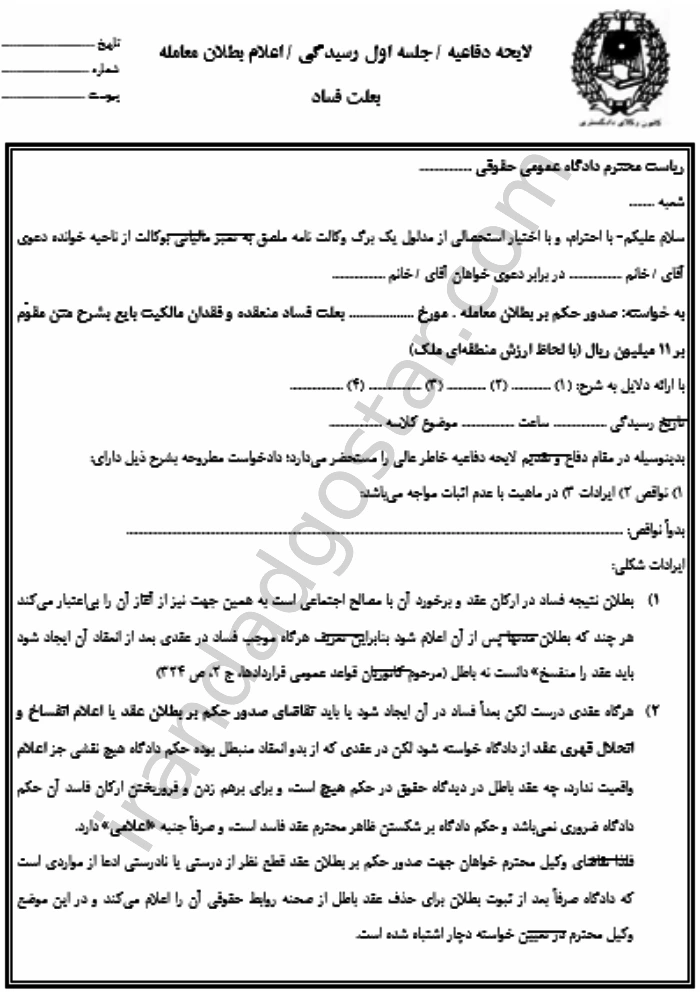 لایحه دفاعیه / جلسه اول رسیدگی / اعلام بطلان معامله
بعلت فساد
تاریخ
شماره
پیوست
کانون وکلای دادگستری
ریاست محترم دادگاه عمومی حقوقی ............
شعبه ......
سلام علیکم- با احترام، و با اختیار استحصالی از مدلول یک برگ وکالت نامه ملصق به تمبر مالیاتی بوکالت از ناحیه خوانده دعوی
آقای / خانم ............ در برابر دعوی خواهان آقای / خانم ............
به خواسته: صدور حکم بر بطلان معامله . مورخ ............... بعلت فساد منعقده و فقدان مالکیت بایع بشرح متن مقوّم
بر ۱۱ میلیون ریال (با لحاظ ارزش منطقه‌ای ملک)
با ارائه دلایل به شرح: (۱) ......... (۲) ......... (۳) ............ (۴) ............
تاریخ رسیدگی ............ ساعت ............ موضوع کلاسه ............
بدینوسیله در مقام دفاع و تقدیم لایحه دفاعیه خاطر عالی را مستحضر می‌دارد؛ دادخواست مطروحه بشرح ذیل دارای:
۱) نواقص ۲) ایرادات ۳) در ماهیت با عدم اثبات مواجه می‌باشد:
بدواً نواقص: ............................................................
ایرادات شکلی:
۱) بطلان نتیجه فساد در ارکان عقد و برخورد آن با مصالح اجتماعی است به همین جهت نیز از آغاز آن را بی‌اعتبار می‌کند
هر چند که بطلان مدتها پس از آن اعلام شود بنابراین تعریف هرگاه موجب فساد در عقدی بعد از انعقاد آن ایجاد شود
باید عقد را منفسخ» دانست نه باطل (مرحوم کاتوزیان قواعد عمومی قراردادها، ج ۲، ص ۳۲۴)
۲) هرگاه عقدی درست لکن بعداً فساد در آن ایجاد شود یا باید تقاضای صدور حکم بر بطلان عقد یا اعلام انفساخ و
انحلال قهری عقد از دادگاه خواسته شود لکن در عقدی که از بدو انعقاد منبطل بوده حکم دادگاه هیچ نقشی جز اعلام
واقعیت ندارد، چه عقد باطل در دیدگاه حقوق در حکم هیچ است، و برای برهم زدن و فروریختن ارکان فاسد آن حکم
دادگاه ضروری نمی‌باشد و حکم دادگاه بر شکستن ظاهر محترم عقد فاسد است، و صرفاً جنبه «اعلامی» دارد.
فلذا تقاضای وکیل محترم خواهان جهت صدور حکم بر بطلان عقد قطع نظر از درستی یا نادرستی ادعا از مواردی است
که دادگاه صرفاً بعد از ثبوت بطلان برای حذف عقد باطل از صحنه روابط حقوقی آن را اعلام می‌کند و در این موضع
وکیل محترم در تعیین خواسته دچار اشتباه شده است.
irandadgostar.com